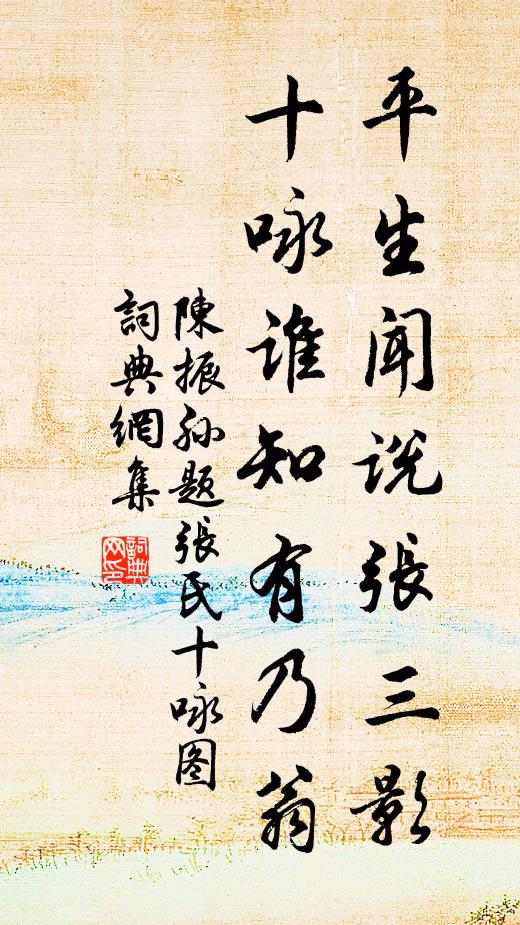 平生闻说張三影
十咏谁知有乃翁
陳振孙题張氏十咏图
詞典網集
詞典网印